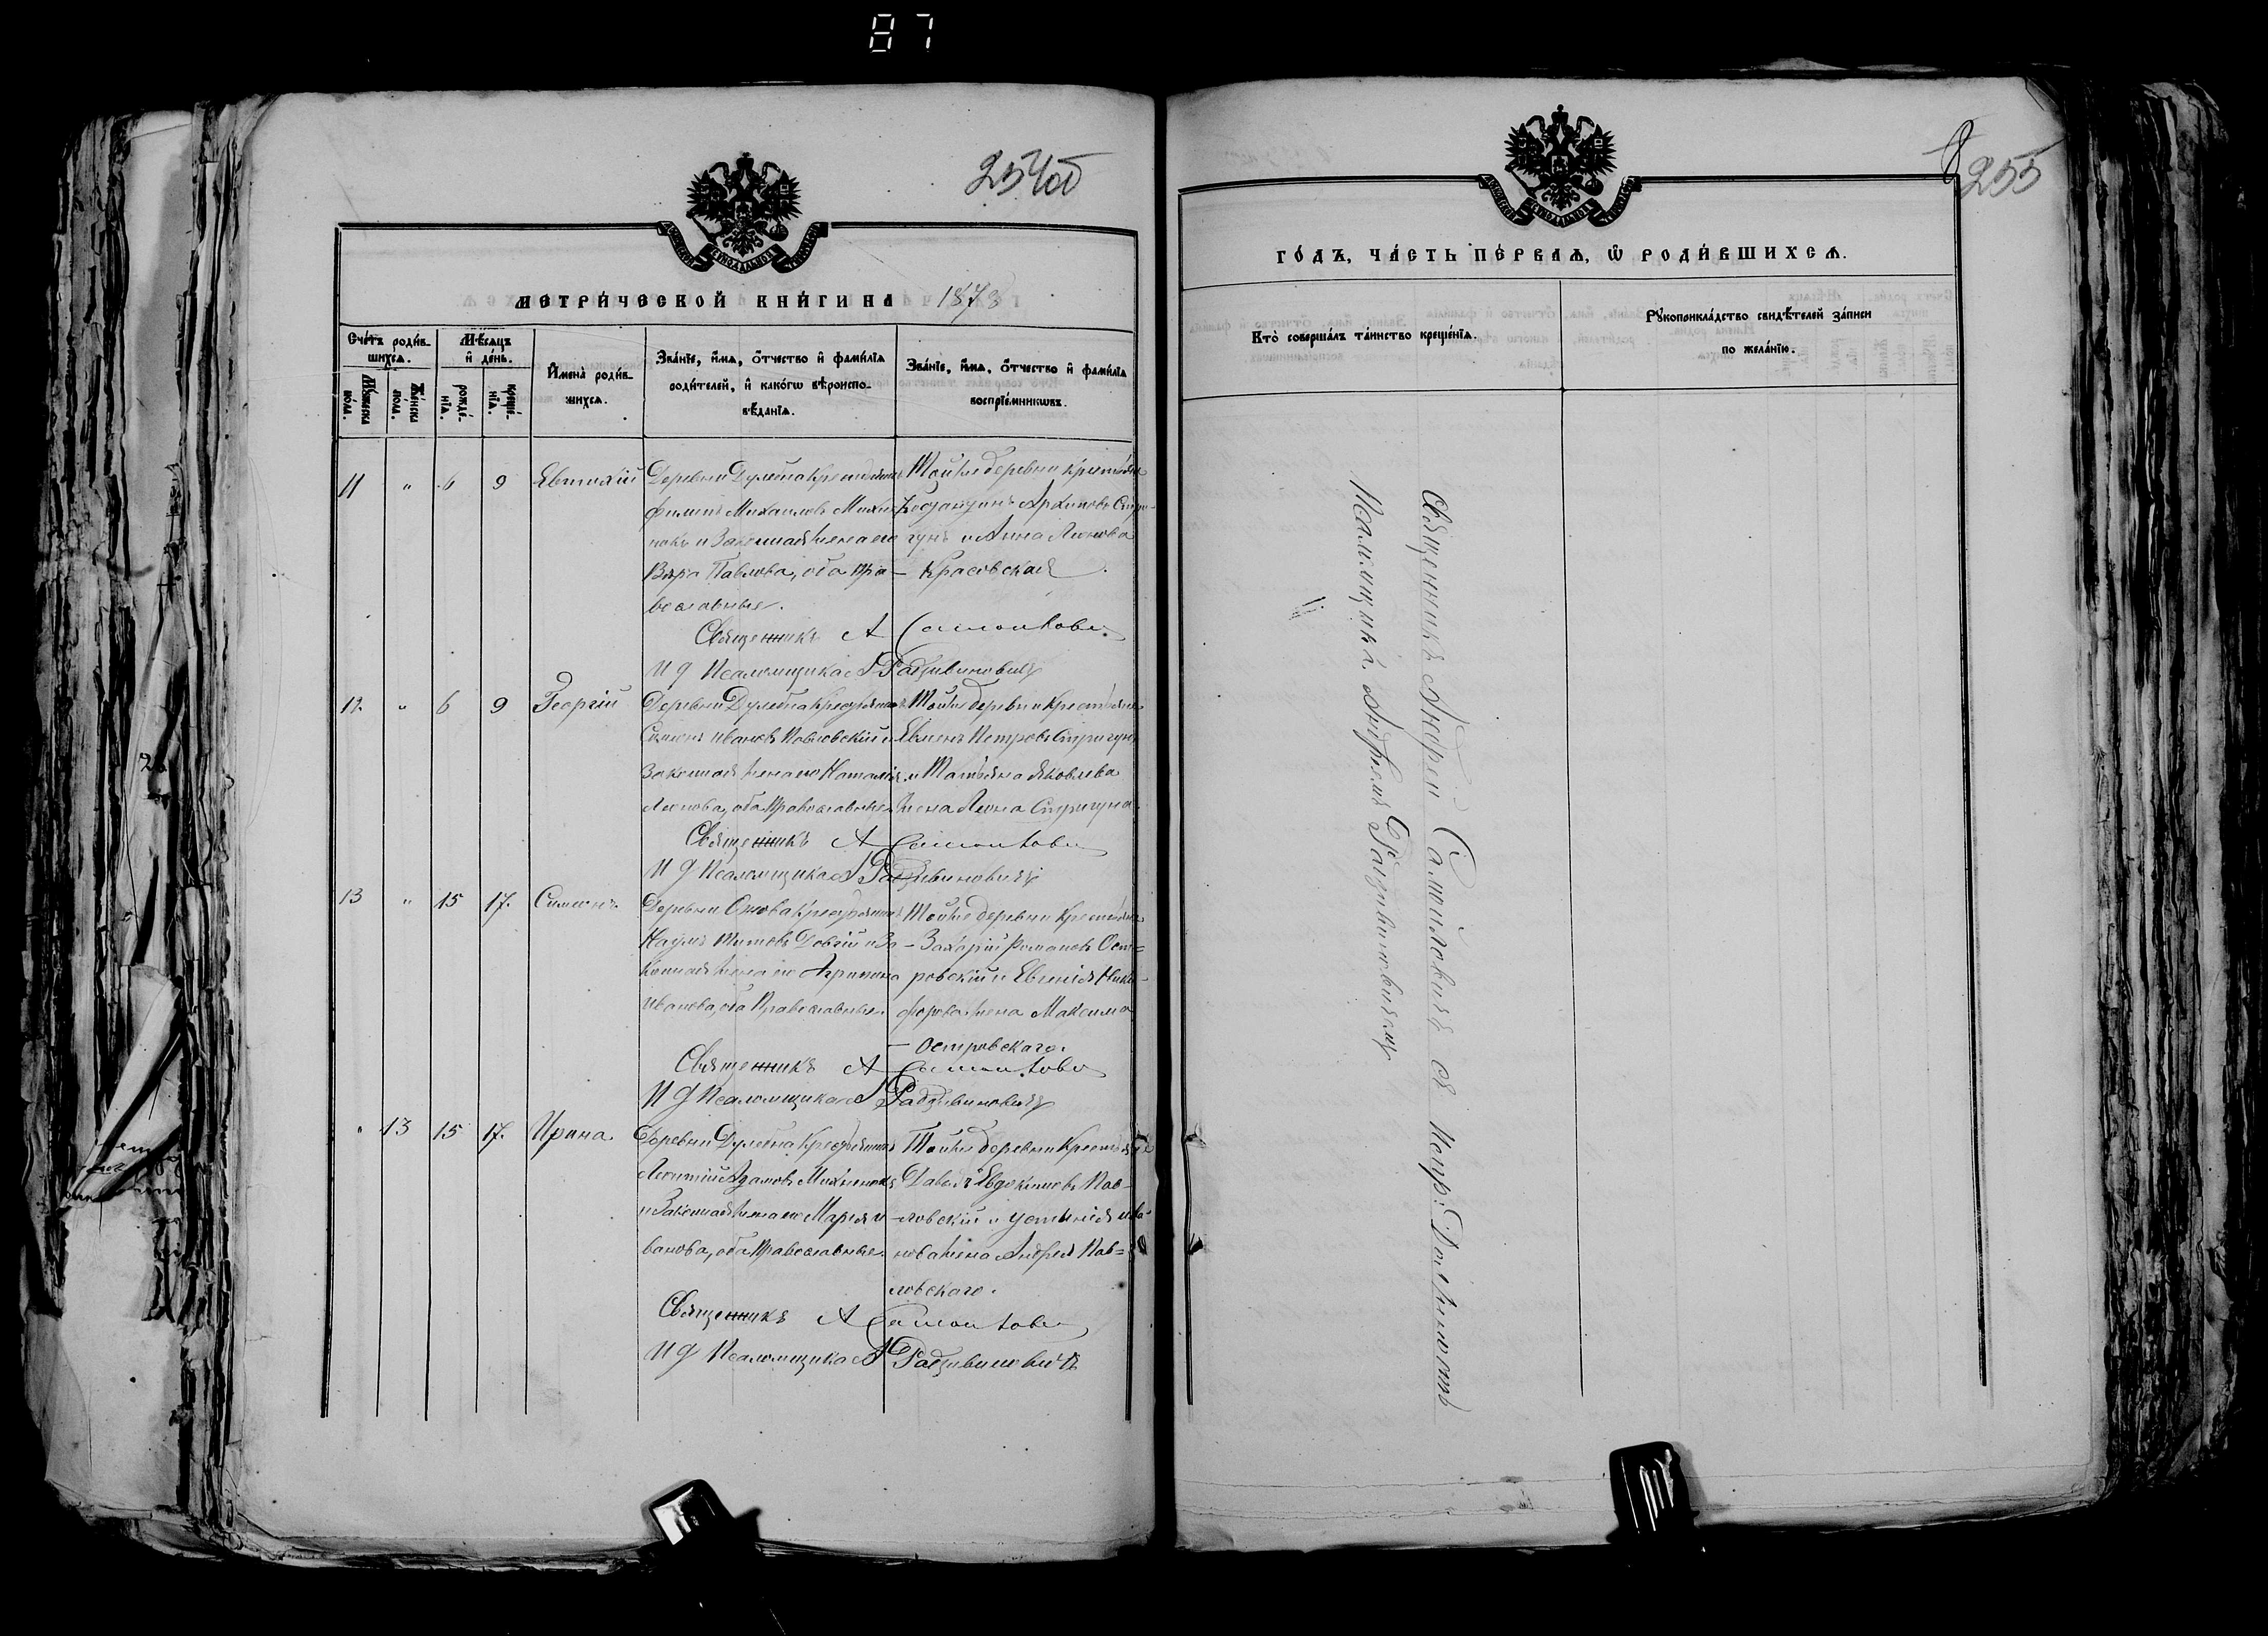 87
254об
МЕТРИ́ЧЕСКОЙ КНИ́ГИ НА 1873
Сче́тъ роди́в-
шихсѧ.
Мꙋ́жеска
по́ла.
Же́нска
пола.
Мѣ́сѧцъ
и҆ де́нь.
рожде́-
нїѧ.
креще́-
нїѧ.
И҆мена̀ роди́в-
шихсѧ.
Зва́нїе, и҆́мѧ, ѻ҆́тчество и҆ фами́лїѧ
роди́телей, и҆ како́гѡ вѣроиспо-
вѣ́данїѧ.
Зва́нїе, и҆́мѧ, ѻ҆́тчество и҆ фами́лїѧ
воспрїе́мникѡвъ.
11 " 6 9 Евтихій
Деревни Дулеба крестьянинъ
Филипъ Михаиловъ Михн
нокъ и Законная жена его
Вѣра Павлова, оба пра-
вославные.
Тойже деревни крестьян
Архиповъ Стри-
гунъ и Анна Леонова
Красовская
Священникъ А Самойлови
И д Псаломщика А Радзивиновичъ
12. " 6 9 Георгій
Деревни Дулеба Крестьянинъ
Симонъ Ивановъ Павловскій и
Законная жена его Наталія
Леонова, оба Православные
Тойже деревни Крестьян
Евменъ Петровъ Стригунъ
и Татьяна Яковлева
жена Леона Стригуна
Священникъ А Самойлови
И д Псаломщика А Радзивиновичъ
13 " 15 17. Симонъ
Деревни Крестьянинъ
Наумъ Титовъ Довгій и За-
конная жена его Агрипина
Иванова, оба Православные.
Тойже деревни Крестьян
Захарій Романовъ Ост=
ровскій и Евгенія Ники-
форова жена Максима
Островскаго.
Священникъ А Самойлови
И д Псаломщика А Радзивиновичъ
" 13 15 17. Ирина.
Деревни Дулеба Крестьянинъ
Леонтій Адамовъ Михненокъ
и Законная жена его Марія И
ванова, оба Православные.
Тойже деревни Крестьяне
Давидъ Евдокимовъ Пав-
ловскій и Устинія Ива-
нова жена Андрея Пав=
ловскаго.
Священникъ А Самойлови
И д Псаломщика А Радзивиновичъ
255
ГО́ДЪ, ЧА́СТЬ ПЕ́РВАѦ, Ѡ҆ РОДИ́ВШИХСѦ.
Кто̀ соверша́лъ та́инство креще́нїѧ.
Рꙋкоприкла́дство свидѣ́телей за́писи
по жела́нїю.
Священникъ Андрей Самойловичъ съ Испр: Должность
Псаломщика Андреемъ Радзивиновичемъ